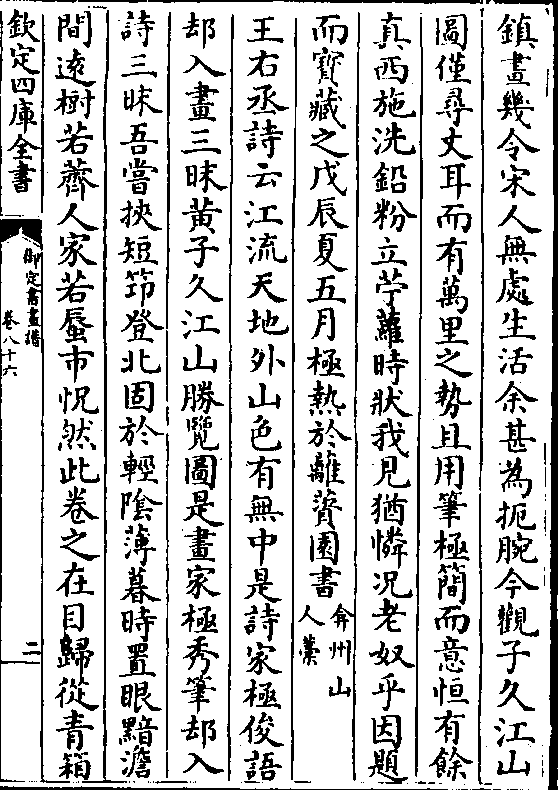 鎮畫幾令宋人無處生活余甚為扼腕今觀子久江山
圖僅尋丈耳而有萬里之勢且用筆極簡而意恒有餘
真西施洗鉛粉立苧蘿時狀我見猶憐况老奴乎因題
而寳藏之戊辰夏五月極熱於離薋園書弇州山人藁
王右丞詩云江流天地外山色有無中是詩家極俊語
却入畫三昧黃子久江山勝覽圖是畫家極秀筆却入
詩三昧吾嘗挾短笻登北固於輕陰薄暮時置眼黯澹
間遠樹若薺人家若蜃市怳然此卷之在目歸從青箱
欽定四庫全書
御定書畫譜
卷八十六
二